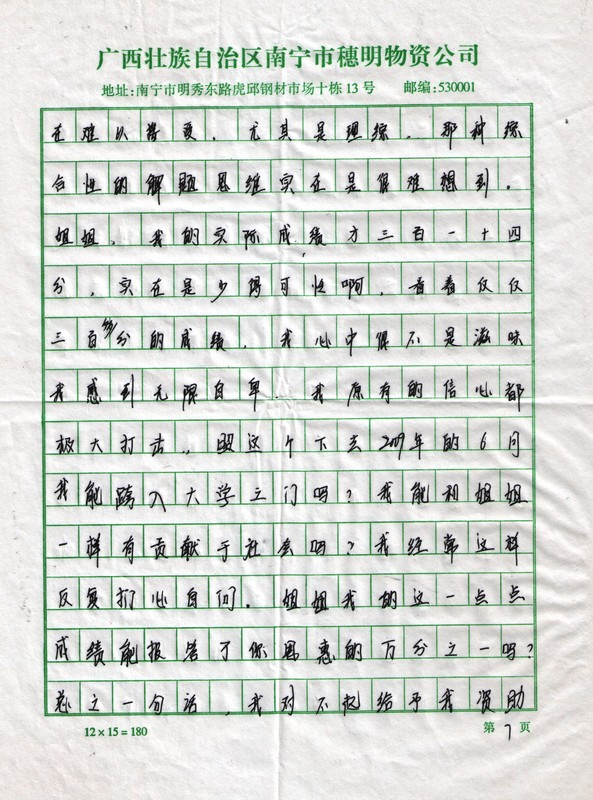 广西壮族自治区南宁市穗明物资公司
地址:南宁市明秀东路虎邱钢材市场十栋13号 邮编:530001
在难以接受，尤其是理综，那种综
合性的解题思维实在是很难想到。
姐姐，我的实际成绩才三百一十四
分，实在是少得可怜啊，看着仅仅
三百多分的成绩，我心中很不是滋味
我感到无限自卑，我原有的信心都
极大打击，照这个下去2009年的6月
我能跨入大学之门吗？我能和姐姐
一样有贡献于社会吗？我经常这样
反复扪心自问。姐姐我的这一点点
成绩能报答了你恩惠的万分之一吗？
总之一句话，我对不起给予我资助
12×15=180
第7页